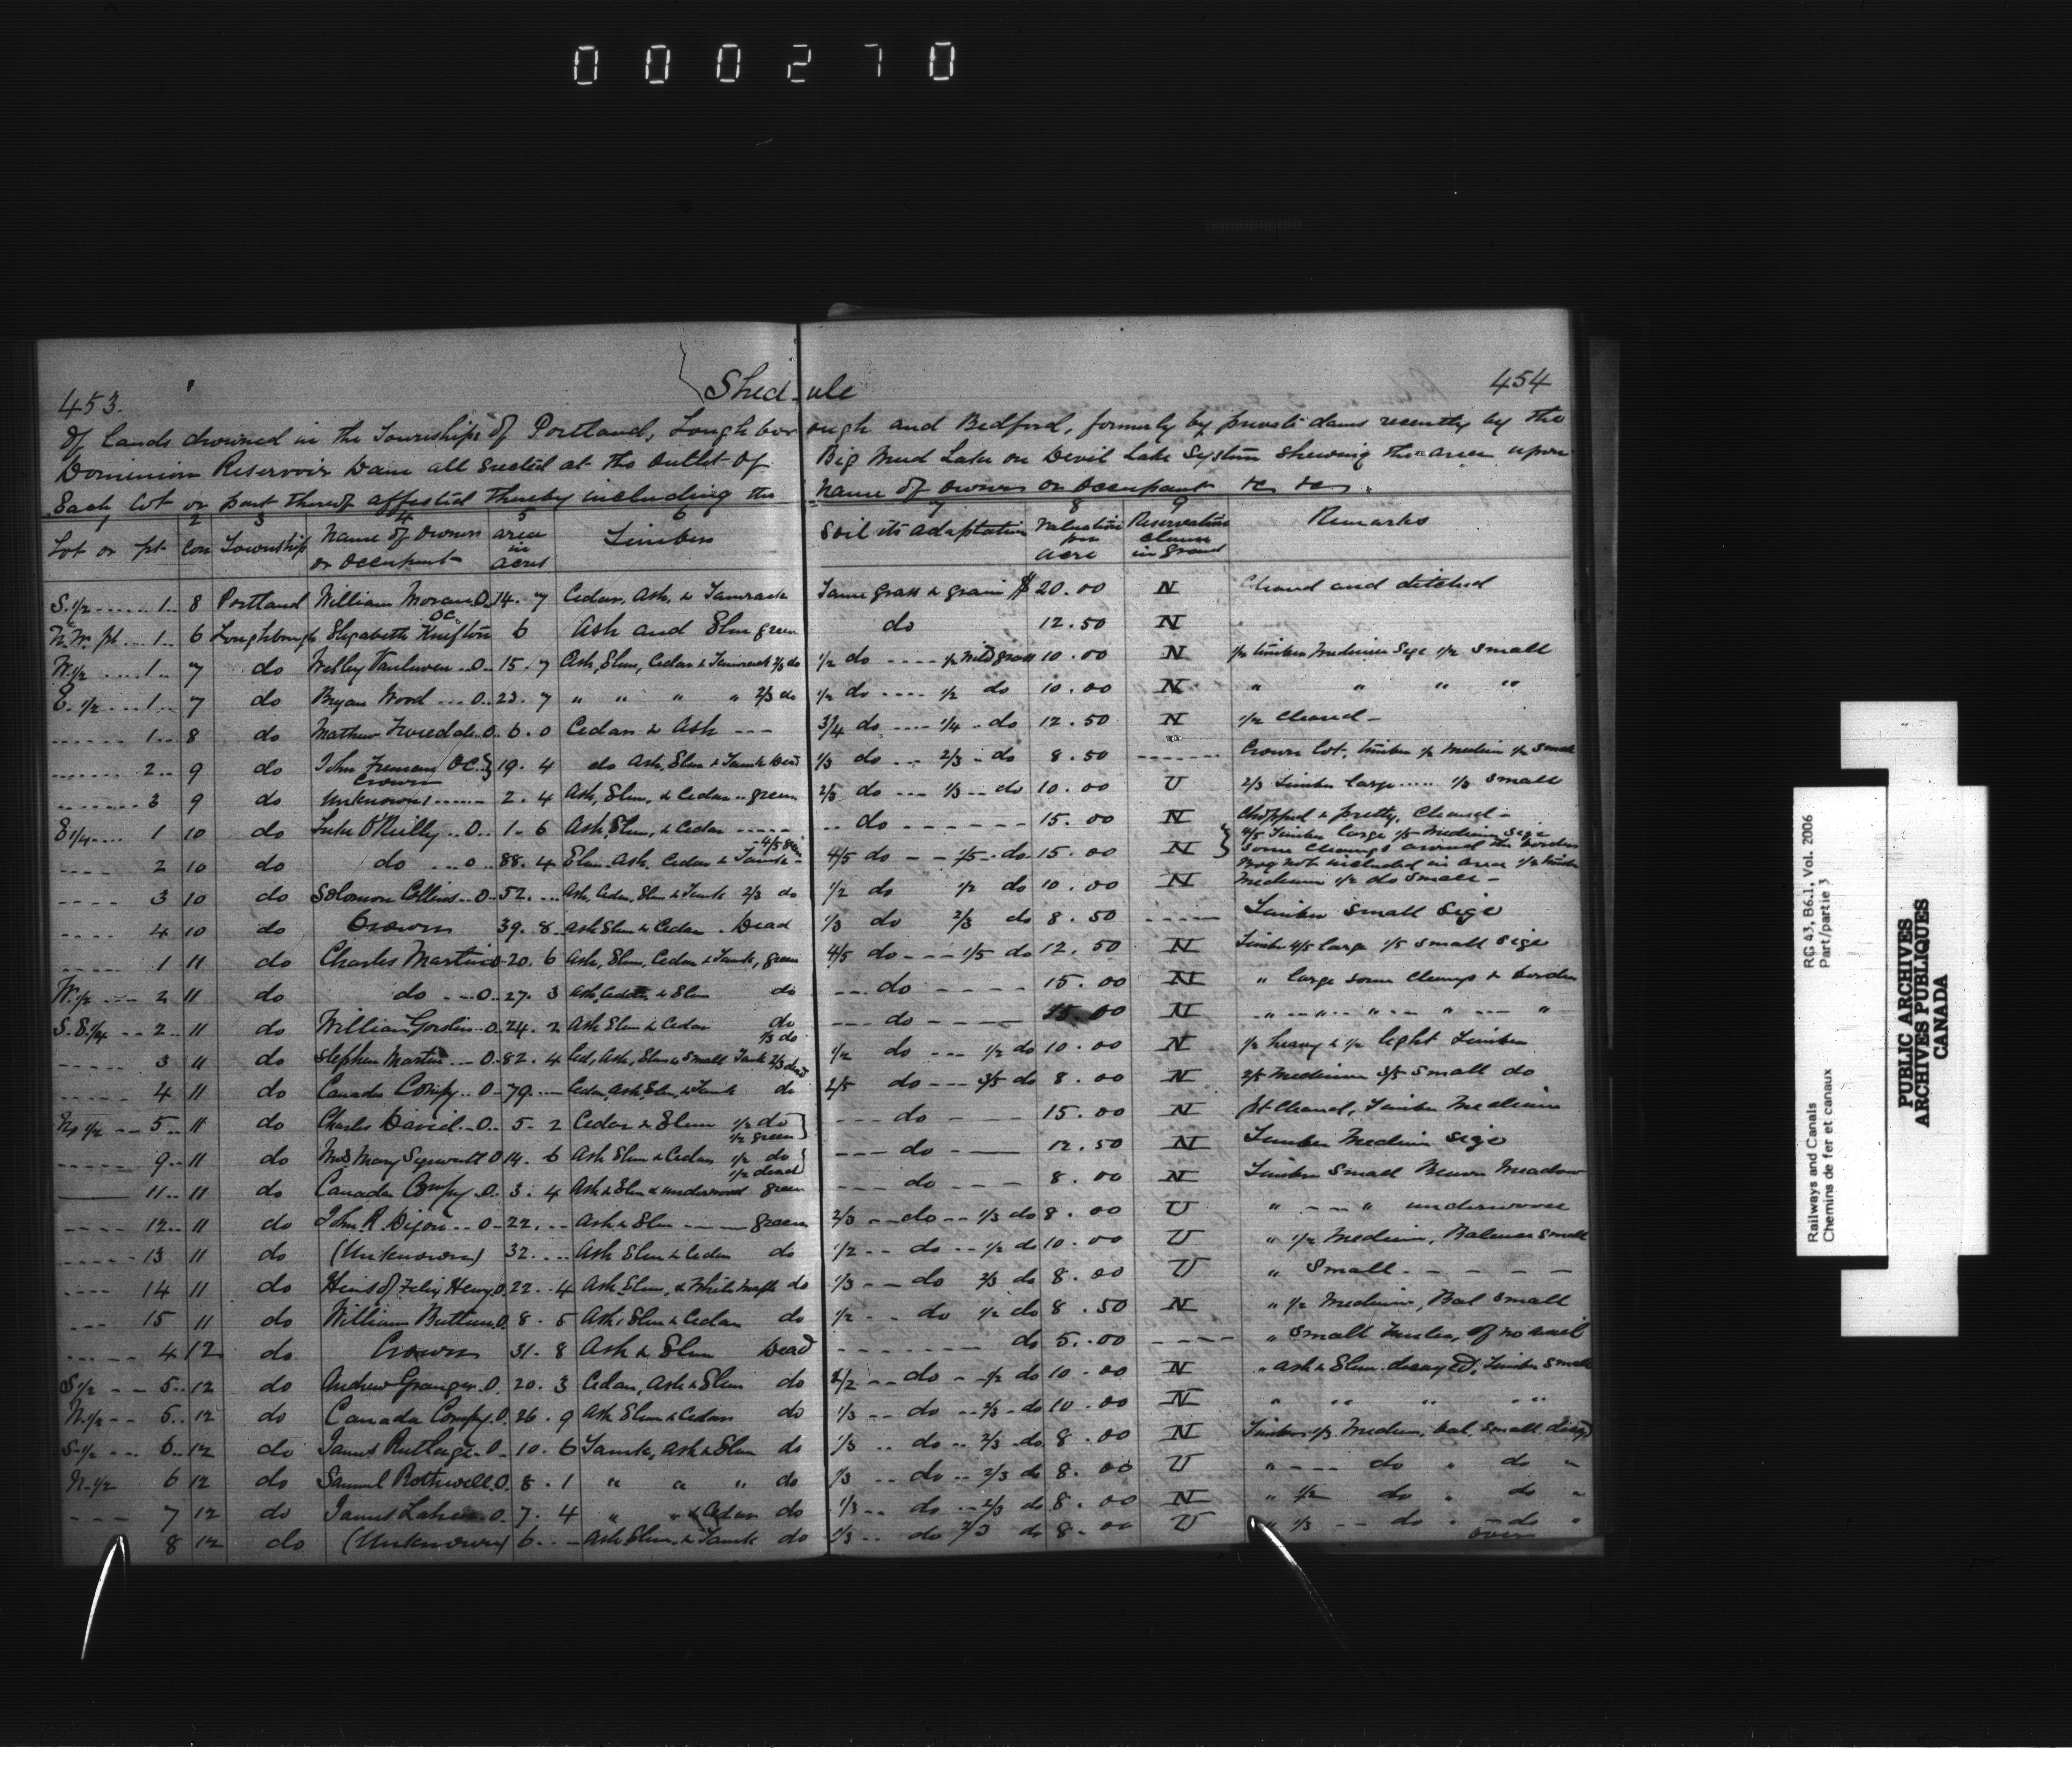 000270
453.
Shed-ule
454
Of lands drowned in the Townships of Portland, Loughborough and Bedford, formerly by private dams recently by the
Dominion Reservoir Dam all erected at the outlet of Big Mud Lake on Devil Lake System shewing the area upon
Each lot or part thereof affected thereby including the name of owner or occupant &c &c.
1 2 3 4 5 6 7 8 9
Lot or pt Con Township Name of Owner or Occupant area in acres Timber Soil its adaptation Valuation per acre Reservation clause in grant Remarks
S. 1/2 ...... 1.. 8 Portland William Moran O. 14. 7 Cedar, Ash, & Tamrack Tame grass & grain $ 20.00 N Cleared and ditched
N.W. pt ... 1.. 6 Loughborough Elizabeth OC. 6 Ash and Elm green do 12.50 N
W. 1/2 .... 1.. 7 do Wesley Vanluven .. O.. 15. 7 Ash, Elm, Cedar & Tamrack 2/3 do 1/2 do .... 1/2 Wild grass 10.00 N 1/2 timber Medium Size 1/2 Small
E. 1/2 .... 1.. 7 do Bryan Wood ... O.. 23. 7 " " " " 2/3 do 1/2 do .... 1/2 do 10.00 N " " " "
...... 1.. 8 do Mathew O.. 6. 0 Cedar & Ash --- 3/4 do .... 1/4 .. do 12.50 N 1/2 Cleared -
....... 2.. 9 do John Freeman OC. Crown } 19. 4 do Ash, Elm & Tamk Dead 1/3 do ... 2/3 .. do 8.50 ------- Crown Lot, timber 1/2 Medium 1/2 Small
........ 3 9 do Unknown ...... 2. 4 Ash, Elm, & Cedar .. green 2/3 do ... 1/3 .. do 10.00 U 2/3 Timber large ..... 1/3 Small
E 1/4 .... 1 10 do Luke O'Reilly .. O.. 1. 6 Ash, Elm, & Cedar ----- .. do ------ 15.00 N Chopped & partly, Cleared -
2 10 do do ... O.. 88. 4 Elm, Ash, Cedar & Tamk - 4/5 green 4/5 do -- 1/5 .. do 15.00 N } 4/5 Timber large 1/5 Medium Size
Some Clearings around the border
Bog not included in area 1/2 timber
---- 3 10 do Solomon Collins .. O.. 52. ... Ash, Cedar, Elm & Tamk 2/3 do 1/2 do 1/2 do 10.00 N Medium 1/2 do Small -
.... 4 10 do Crown 39. 8 Ash Elm & Cedar . Dead 1/3 do 2/3 do 8.50 ----- Timber Small Size
..... 1 11 do Charles Martin O 20. 6 Ash, Elm, Cedar & Tamk, green 4/5 do --- 1/5 do 12.50 N Timber 4/5 large 1/5 Small Size
W. 1/2 --- 2 11 do do ... O.. 27. 3 Ash, Cedar & Elm do --- do ---- 15.00 N " large Some Clearngs & border
S.E. 1/4 -- 2.. 11 do William O. 24. 2 Ash Elm & Cedar do --- do ---- 15.00 N " " " " "
----- 3 11 do Stephen Martin ... O. 82. 4 Ced, Ash, Elm & Small Tamk 1/3 do 2/3 dead 1/2 do --- 1/2 do 10.00 N 1/2 heavy & 1/2 light Timber
..... 4 11 do Canada Compy .. O- 79. --- Cedar, Ash, Elm, & Tamk do 2/5 do --- 3/5 do 8.00 N 2/5 Medium 3/5 Small do
N 1/2 -- 5.. 11 do Charles David .. O.. 5. 2 Cedar & Elm 1/2 do 1/2 green } --- do --- 15.00 N Pt Cleared, Timber Medium
..... 9.. 11 do Mrs Mary O 14. 6 Ash Elm & Cedar 1/2 do 1/2 dead } --- do ---- 12.50 N Timber Medium Size
11.. 11 do Canada Compy. O. 3. 4 Ash & Elm & underwood green --- do ---- 8.00 N Timber Small Beaver Meadow
---- 12.. 11 do John R. Dixon .. O- 22. -- Ash & Elm ---- green 2/3 -- do -- 1/3 do 8.00 U " -- " underwood
.... 13 11 do (Unknown) 32. ... Ash Elm & Cedar do 1/2 -- do -- 1/2 do 10.00 U " 1/2 Medium, Balance Small
---- 14 11 do Heirs of Felix Henry O. 22. 4 Ash, Elm, & White Maple do 1/3 -- do 2/3 do 8.00 U " Small - - - - -
--- 15 11 do William O. 8. 5 Ash, Elm & Cedar do 1/2 -- do 1/2 do 8.50 N " 1/2 Medium, Bal Small
..... 4 12 do Crown 31. 8 Ash & Elm Dead ------- do 5.00 ---- " Small timber, of no avail
S 1/2 -- 5.. 12 do Andrew Granger O. 20. 3 Cedar, Ash & Elm do 1/2 -- do - 1/2 do 10.00 N " Ash & Elm decayed, Timber Small
N. 1/2 -- 5.. 12 do Canada Compy. O. 26. 9 Ash Elm & Cedar do 1/3 -- do -- 2/3 - do 10.00 N " " " "
S. 1/2 --- 6.. 12 do James Rutledge . O. 10. 6 Tamk, Ash & Elm do 1/3 .. do .. 2/3 . do 8.00 N Timber 1/3 Medium, bal. Small
N. 1/2 6 12 do Samuel Rothwell O. 8. 1 " " " do 1/3 .. do .. 2/3 do 8.00 U " --- do " do "
--- 7 12 do James O. 7. 4 " " & Cedar do 1/3 -- do -- 2/3 do 8.00 N " 1/2 do " do "
8 12 do (Unknown) 6. .. Ash Elm & Tamk do 1/3 .. do 2/3 do 8.00 U " 1/3 -- do " do "
over
Railways and Canals
Chemins de fer et canaux
RG 43, B6.1, Vol. 2006
Part/partie 3
PUBLIC ARCHIVES
ARCHIVES PUBLIQUES
CANADA